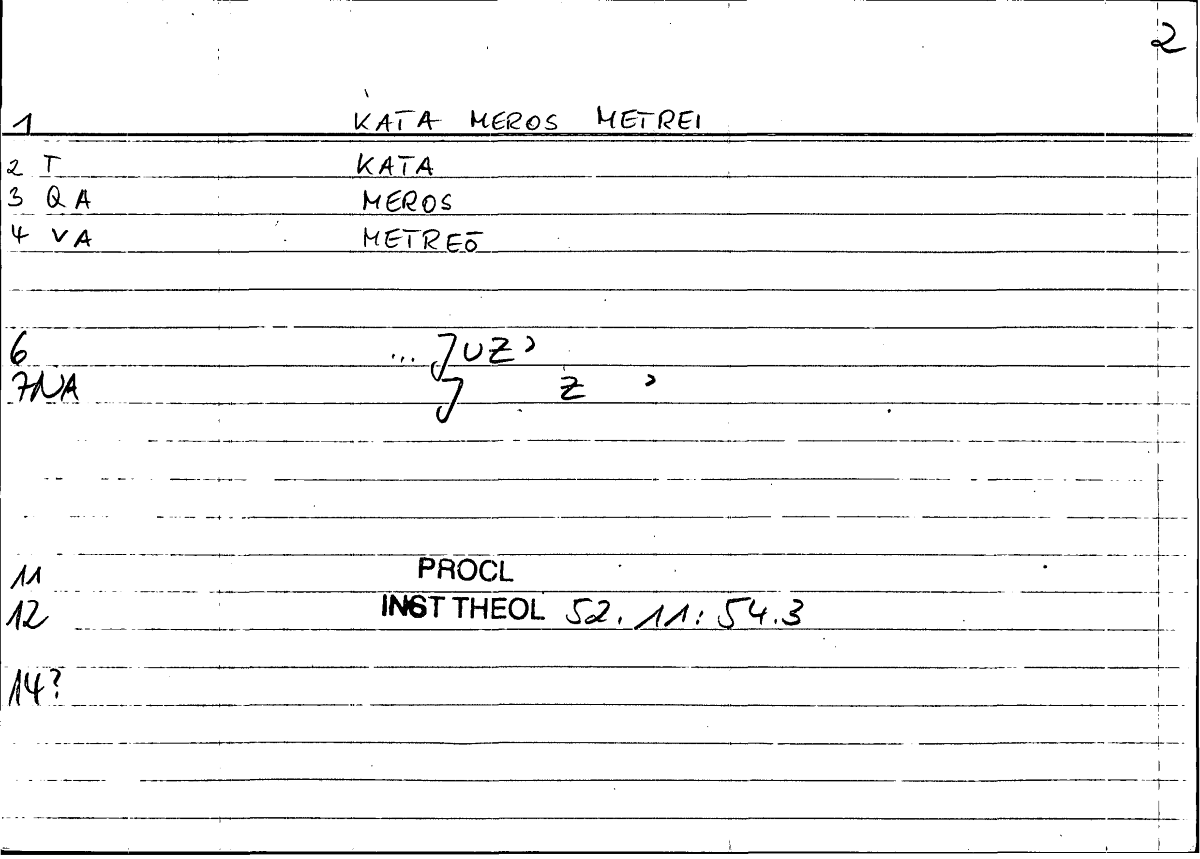 2
1 KATA MEROS METREI
2 T KATA
3 Q A MEROS
4 V A METREŌ
6 ...
7 NA
11 PROCL
12 INST THEOL 52.11:54.3
14?